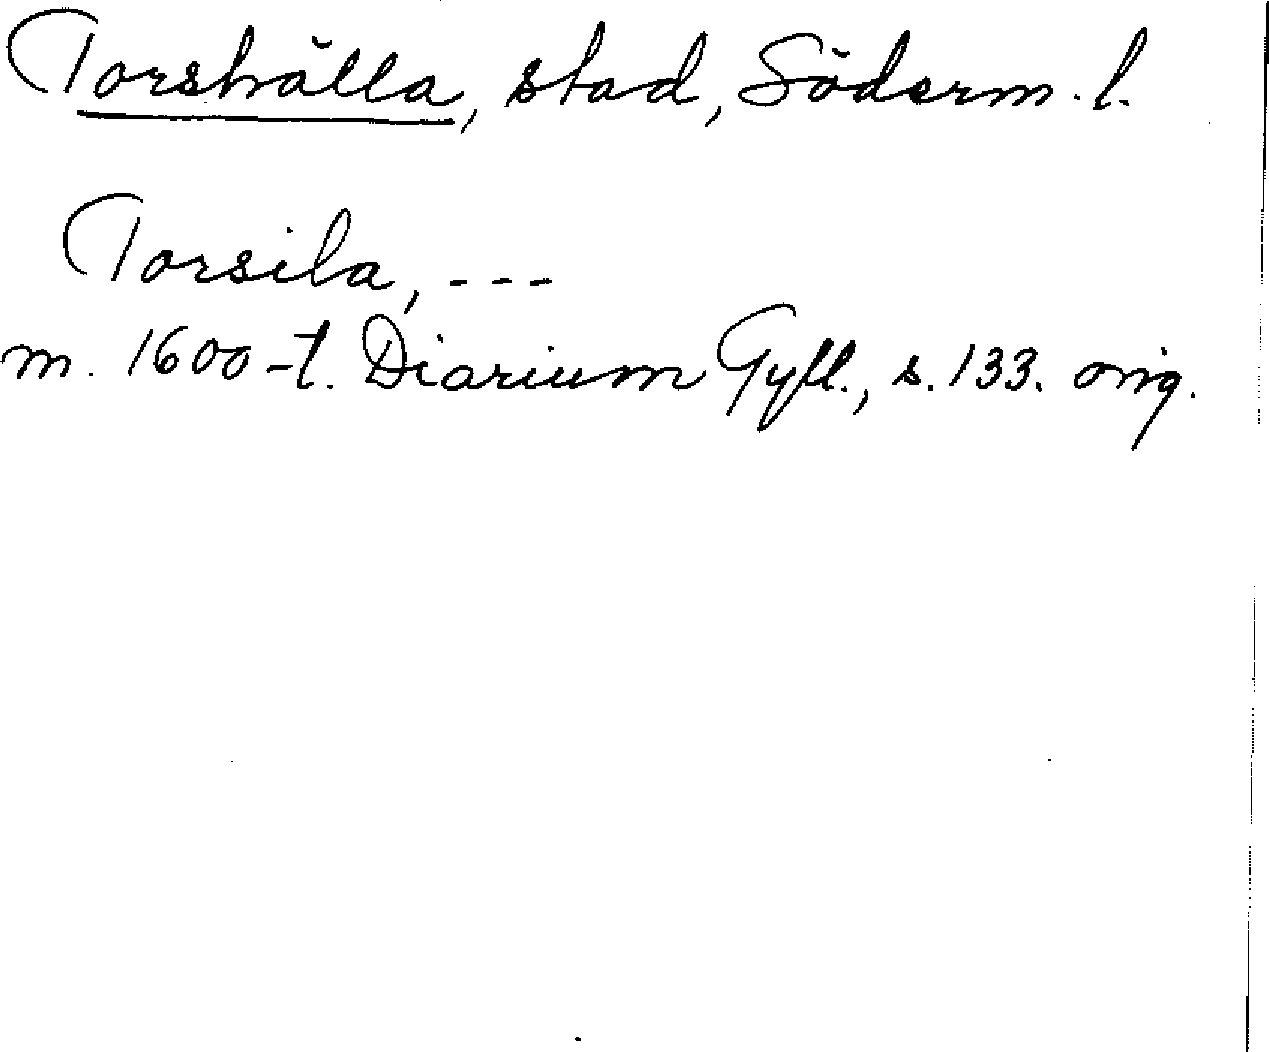 Torshälla, stad, Söderm. l.
Torsila, ---
m. 1600-t. Diarium Gyll., s. 133. orig.